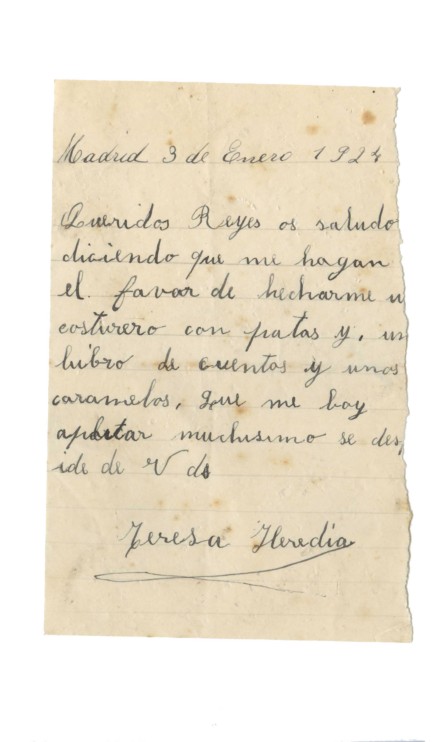 Madrid 3 de Enero 1924
Queridos Reyes os saludo
diciendo que me hagan
el favar de hecharme u
costurero con patas y, un
libro de cuentos y unos
caramelos, que me boy
aplitar muchisimo se desp
ide de V ds
Teresa Heredia